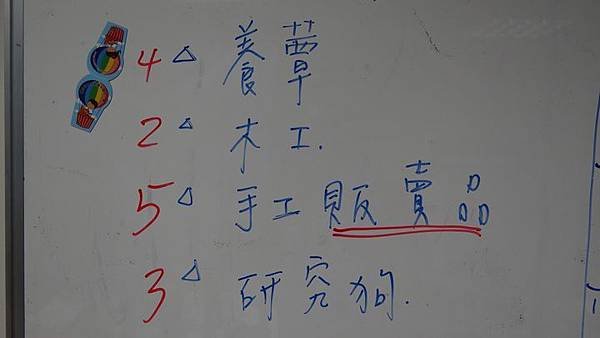 4△ 養蕈
2△ 木工.
5△ 手工販賣品
3△ 研究狗.